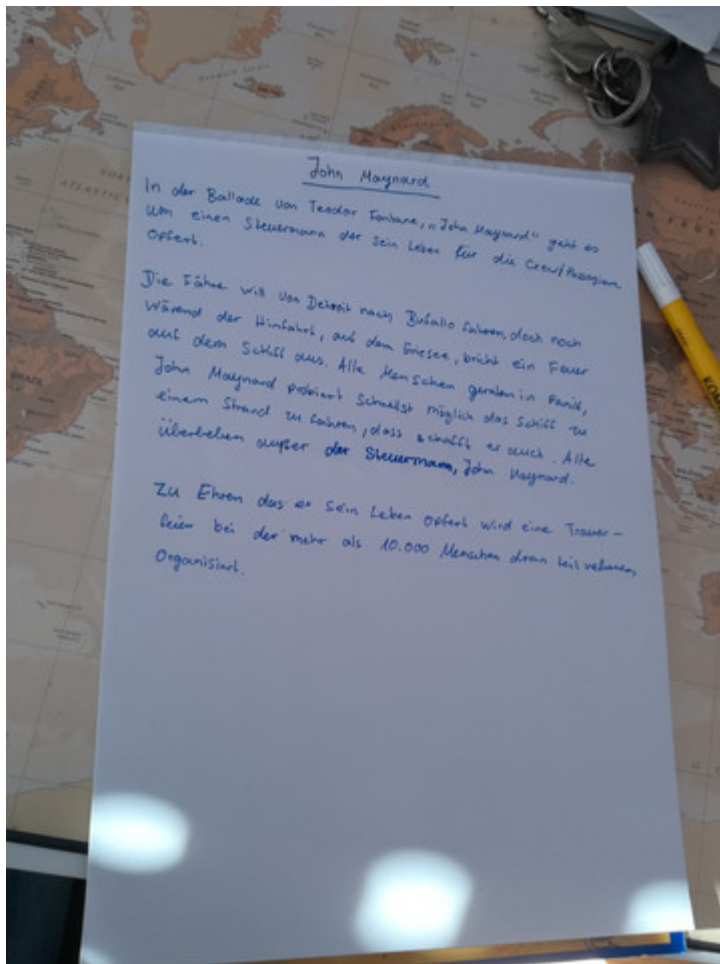 John Maynard
In der Ballade von Teodor Fontane, „John Maynard" geht es
um einen Steuermann der sein Leben für die Crew/Passagiere
Opfert.
Die Fähre will von Detroit nach Bufallo fahren, doch noch
wärend der Hinfahrt, auf dem Eriesee, bricht ein Feuer
auf dem Schiff aus. Alle Menschen geraten in Panik,
John Maynard probiert Schnellst möglich das Schiff zu
einem Strand zu fahren, dass schafft er auch. Alle
überleben außer der Steuermann, John Maynard.
Zu Ehren das er sein Leben opfert wird eine Trauer-
feier bei der mehr als 10.000 Menschen dran teilnehmen,
Organisiert.
BRAZIL